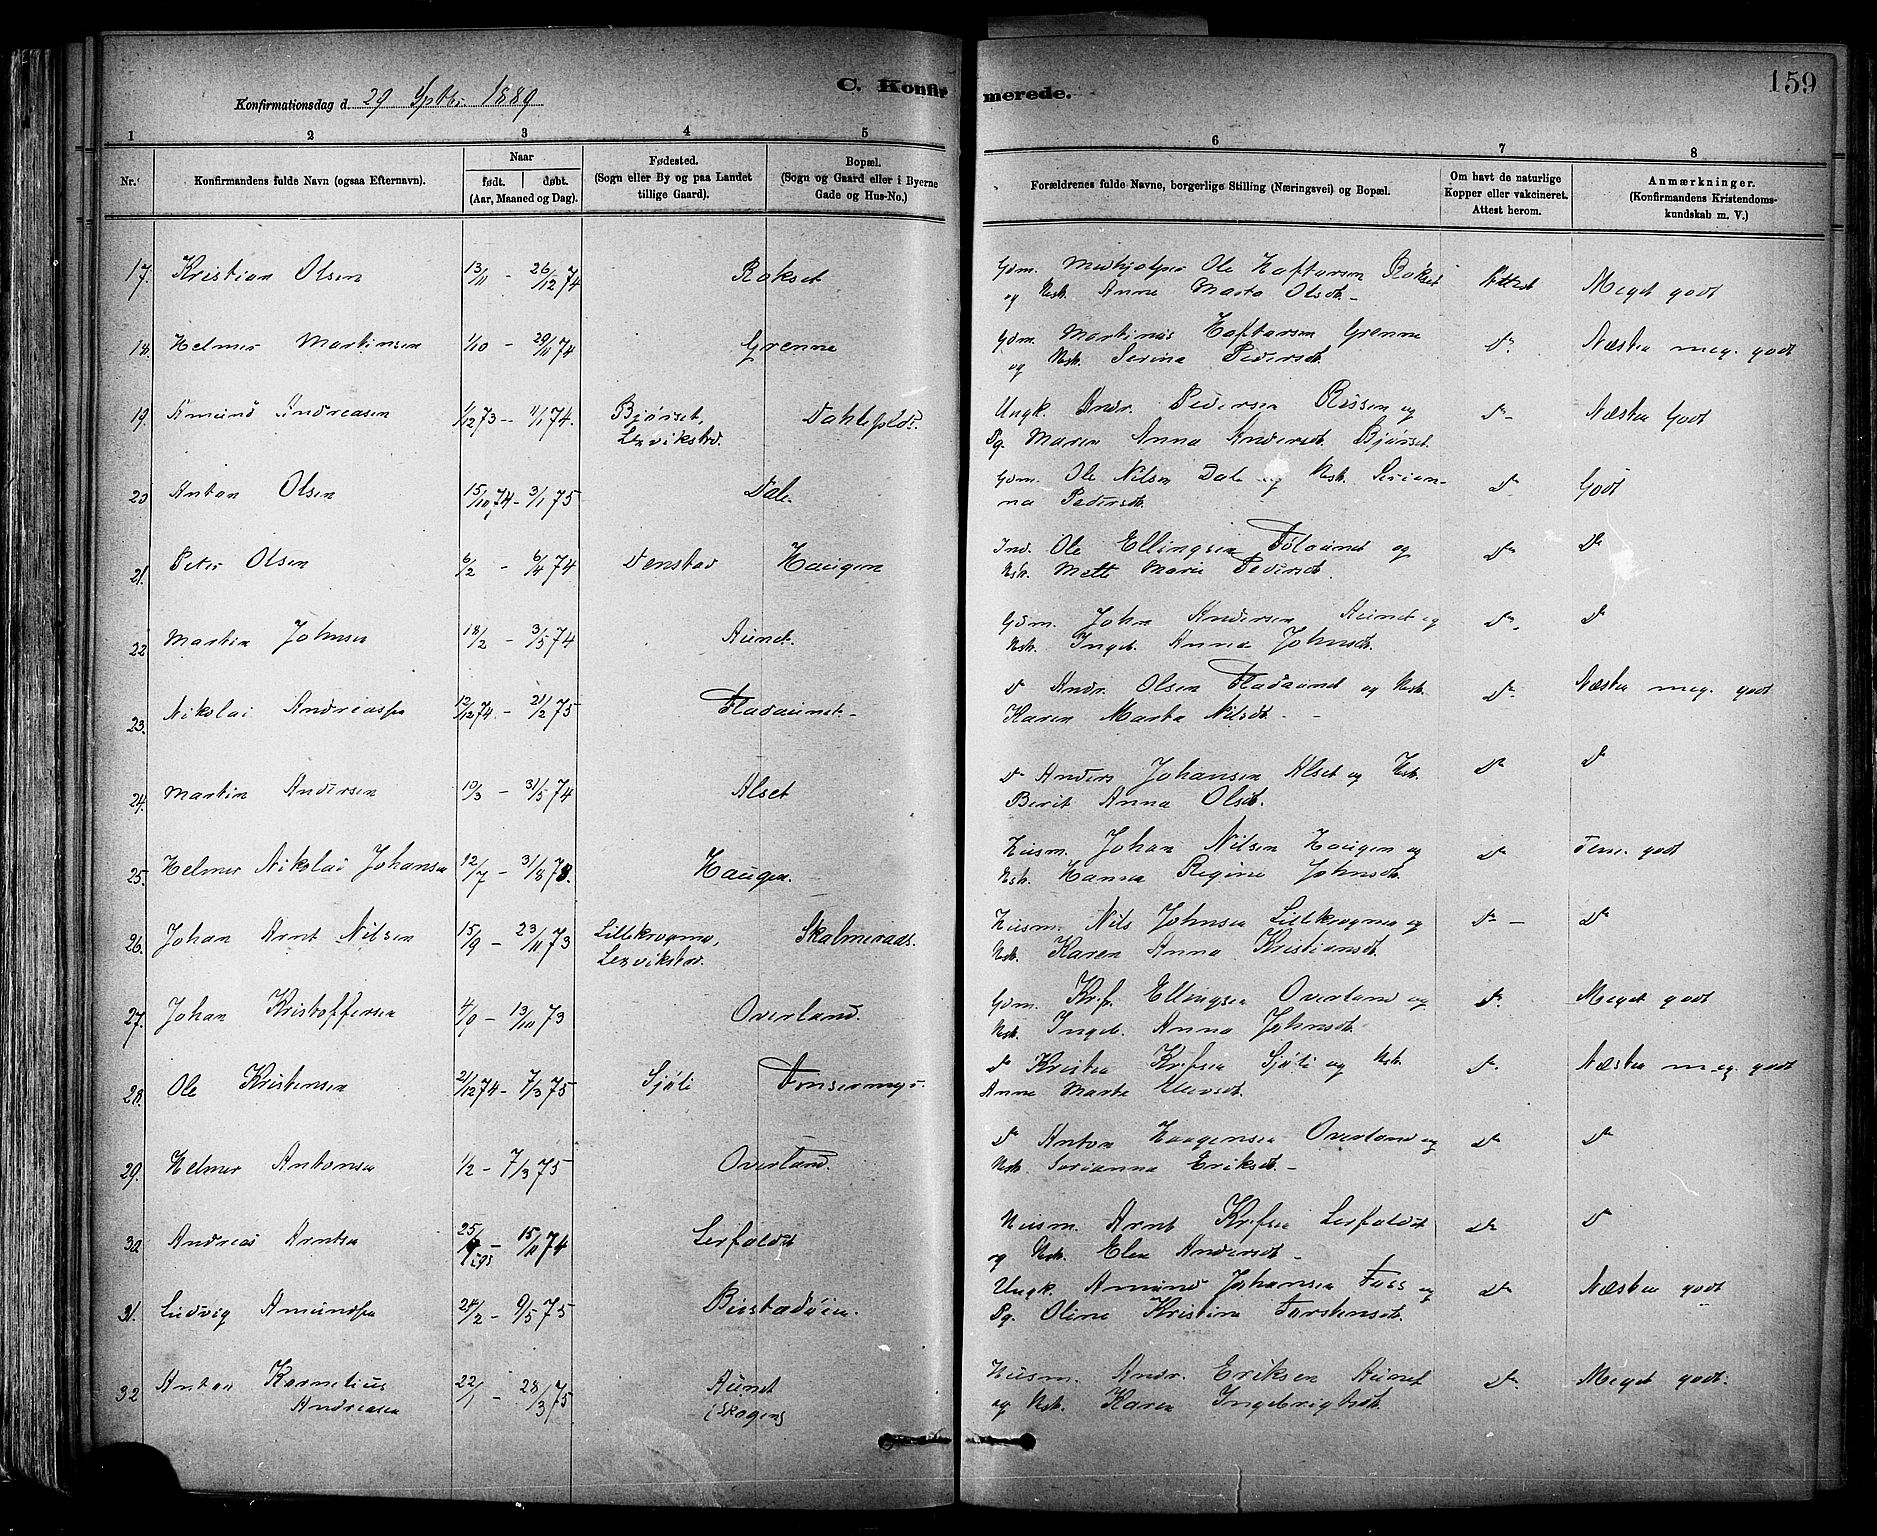 159
Konfirmationsdag d. 29 Septbr. 1889
C. Konfirmerede.
1 2 3 4 5 6 7 8
Nr.
Konfirmandens fulde Navn (ogsaa Efternavn).
Naar
født. døbt.
(Aar, Maaned og Dag).
Fødested.
(Sogn eller By og paa Landet
tillige Gaard).
Bopæl.
(Sogn og Gaard eller i Byerne
Gade og Hus-No.)
Forældrenes fulde Navne, borgerlige Stilling (Næringsvei) og Bopæl.
Om havt de naturlige
Kopper eller vakcineret.
Attest herom.
Anmærkninger.
(Konfirmandens Kristendoms-
kundskab m. V.)
17. Kristian Olsen 13/11 - 26/12 74 Rokset Gdm. Medhjelper Ole Haftorsen Rokset Attest Meget godt
og Hstr. Anne Marta Olsdt. -
18. Helmer Martinsen 1/10 - 29/11 74 Grenne Gdm. Martinus Haftorsen Grenne Do. Næsten meg. godt
og Hstr. Serina Pedersdt.
19. Amund Andreasen 1/12 73 - 11/1 74. Bjørset, Dahlefoldt. Ungk. Andr. Pedersen Rissen og Do - Næsten Godt
Lexvikstrd. Pg. Maren Anna Andersdt. Bjørset.
20 Anton Olsen 15/10 74 - 3/1 75 Dale Gdm. Ole Nilsen Dale og Hstr. Serian- Do. Godt
na Pedersdt.
21. Peter Olsen 6/2 - 6/4 74 Denstad Haugen Ind. Ole Ellingsen og Do Do
Hstr. Mette Marie Pedersdt.
22 Martin Johnsen 18/2 - 3/5 74 Aunet. Gdm. John Andersen Aunet og Do. Do
Hstr. Ingeb. Anna Johnsdt.
23. Nikolai Andreassen 12/12 74. - 21/2 75 Fladaunet - Do Andr. Olsen Fladaunet og Hstr. Do - Næsten meg. godt
Karen Marta Nilsdt. -
24. Martin Andersen 10/3 - 31/5 74 Alset Do Anders Johansen Alset og Hstr. Do Do
Berit Anna Olsdt.
25. Helmer Nikolai Johansen 12/7 - 31/8 73. Haugen. Husm. Johan Nilsen Haugen og Do Tem. godt
Hstr. Hanna Regine Johnsdt.
26. Johan Arnt Nilsen 15/9 - 23/11 73 Lillekrogmo, Skalmeraas. Husm. Nils Johnsen Lillekrogmo og Do - Do
Lexvikstrd. Hstr. Karen Anna Kristiansdt.
27. Johan Kristoffersen 4/9 - 13/10 73 Overland. Gdm. Krf. Ellingsen Overland og Do. Meget godt
Hstr. Ingeb. Anna Johnsdt.
28. Ole Kristensen 21/12 74 - 7/3 75 Sjøli Do Kristen Krfsen Sjøli og Hstr. Do. Næsten meg. godt
Anne Marta Ellevsdt.
29. Helmer Antonsen 1/2 - 7/3 75 Overland. Do Anton Haagensen Overland og Do Do
Hstr. Serianna Eriksdt. -
30. Andreas Arntsen 25/9 - 15/11 74 Lerfaldet Husm. Arnt Krfsen Lerfaldet Do Do
og Hstr. Elen Andersdt. -
31. Ludvig Amundsen 24/2 - 9/5 75 Ungk. Amund Johansen Foss og Do. Næsten godt
Pg. Oline Kristine Torstensdt.
32 Anton Kornelius 22/1 - 28/3 75 Aunet Husm. Andr. Eriksen Aunet Do. Meget godt.
Andreasen (Skogen) og Hstr. Karen Ingebrigtsdt.